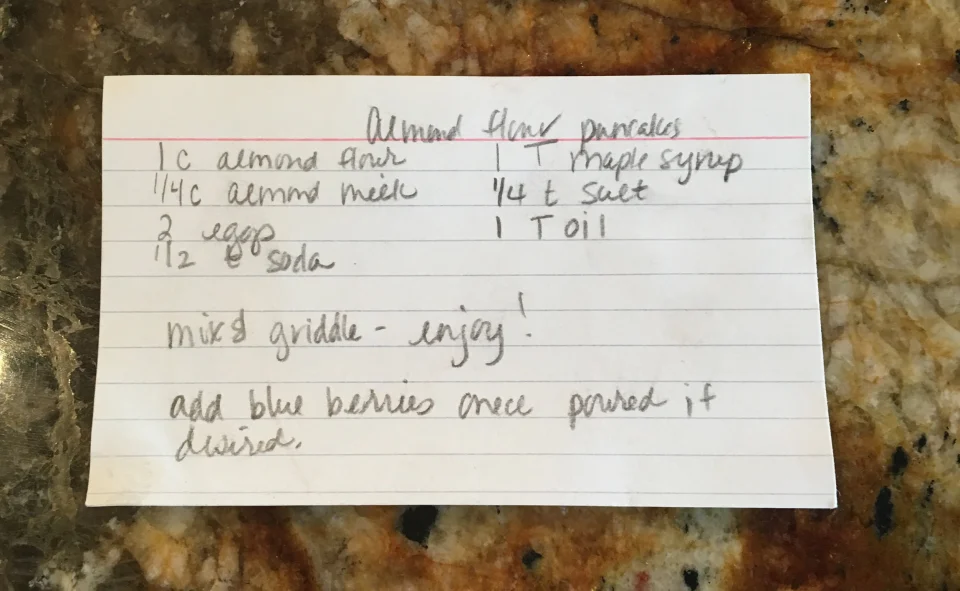 Almond flour pancakes
1 c almond flour 1 T maple syrup
1/4 c almond milk 1/4 t salt
2 eggs 1 T oil
1/2 t soda
mix & griddle - enjoy!
add blue berries once poured if
desired.